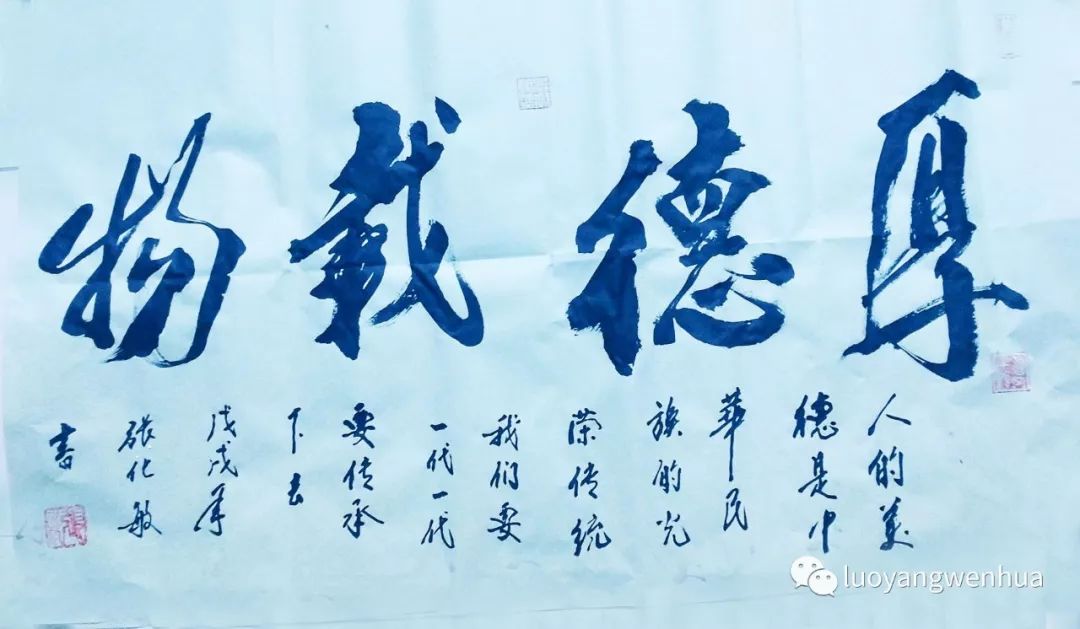 厚德載物
人的美
德是中
華民
族的光
荣传统
我们要
一代一代
要传承
下去
戊戌年
张化敏
书
luoyangwenhua